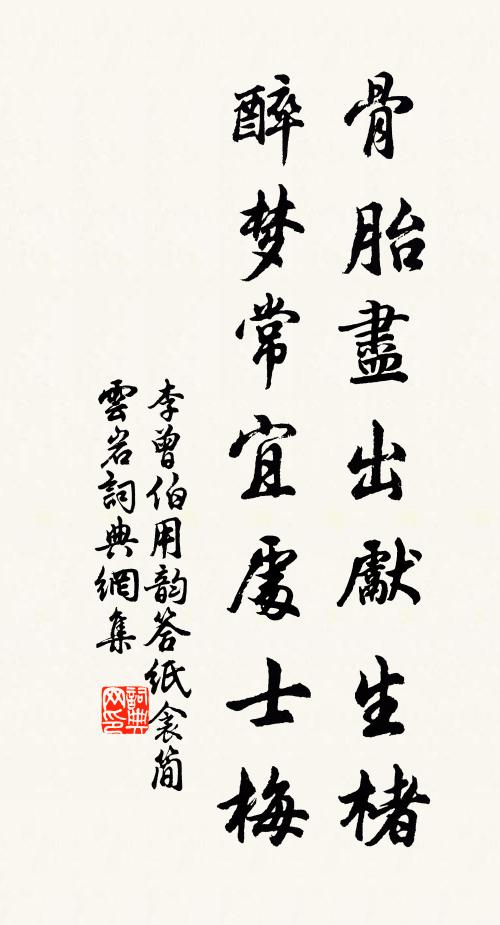 骨胎盡出獻生楮
醉梦常宜處士梅
李曾伯用韵答紙衾简
雲岩詞典網集
詞典网印